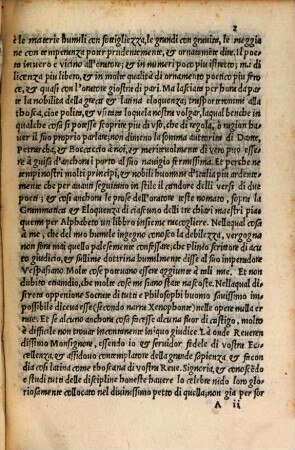 2
è le materie humili con sottigliezza, le grandi con grauità, le meggia
ne con temperanza potrà prudentemente, & ornatamēte dire. il poe
ta inuero è vicino all'oratore; & in numeri poco piu istretto; ma di
licenza piu libero, & in molte qualità di ornamento poetico piu fro
ce, & quasi con l'oratore giostra di pari. Ma lasciate per hora da par
te la nobilità della greca & latina eloquenza, trasportiāmoci alla
thosca, cioè polita, & vsitata loquela nostra volgar, laqual benche in
qualche cosa si potesse scoprire di vso, che di regola, ò ragion ha
uer il suo proprio parlare: non dimeno la somma auttorità di Dante,
Petrarcha, & Boccaccio à noi, & meriteuolmente di vero può esse
re à guisa d'anchora i porto al suo nauigio fermissima. Et perche ne
tempi nostri molti principi, & nobili huomini d'Italia piu ardente
mente che per auanti seguitano in stile il candore delli versi di due
poeti; & cosi le prose dell'oratore teste nomato, sopra la
Grammatica & Eloquenza di ciascuno delli tre chiari maestri pia
quemi per Alphabeto un libbro insieme raccogliere. Nellaqual cosa
à me, che del mio humile ingegno conosco la debilezza, vergogna
non sarà mai quello palesemente confessare; che Plinio scrittore di acu
to giudicio, & sottile dottrina humilmente disse al suo imperadore
Vespasiano. Molte cose potrano essere aggiunte à tali mie. Et non
dubito etiandio, che molte cose mi siano nascoste. Nellaqual di
screta oppenione Socrate di tutti e Philosophi huomo sauissimo im
possibile diceua esse (secondo narra Xenophonte) nelle opere nulla er
rare. Et se alcuno anchora cose facesse alcuna fuor di castigo, molto
è difficile non trouar incontanente iniquo giudice. Là onde Reueren
dissimo Monsignore, essendo io & seruidor fedele di vostra Ec=
cellenza, & assiduo contemplatore della grande sapienza, & facon
dia cosi latina come thoscana di vostra Reue. Signoria, & conoscēdo
e studi tutti delle discipline honeste hauere lo celebre nido lor glo=
riosamente collocato nel diuinissimo petto di quella; non già per sor
A ii